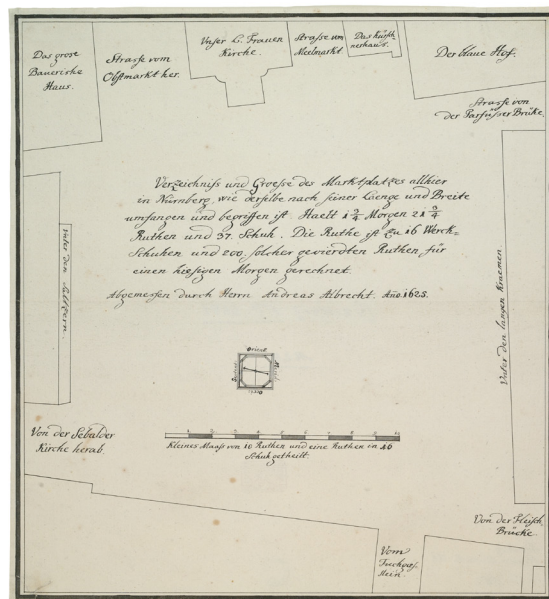 Das grose
Bauerische
Haus.
Strasse vom
Obstmarkt her.
Unser L. Frauen
Kirche.
Strasse vom
Meelmarkt
Das Kürsch-
nershaus.
Der blaue Hof.
Strasse von
der Parfüsser Brüke.
Verzeichniss und Groesse des Marktplatzes allhier
in Nürnberg, wie derselbe nach seiner Laenge und Breite
umfangen und begriffen ist. Haelt 1 3/4 Morgen 21 3/4
Ruthen und 37. Schuh. Die Ruthe ist zu 16 Werck-
Schuhen und 200 solcher gevierdten Ruthen für
einen hiesigen Morgen gerechnet.
Abgemessen durch Herrn Andreas Albrecht. Año. 1625.
Unter den
Unter den langen Kraemen.
Orient
Von der Sebalder
Kirche herab.
Kleines Maass von 10 Ruthen und eine Ruthen in 16
Schuh getheilt.
Von der Fleisch
Brücke.
Vom